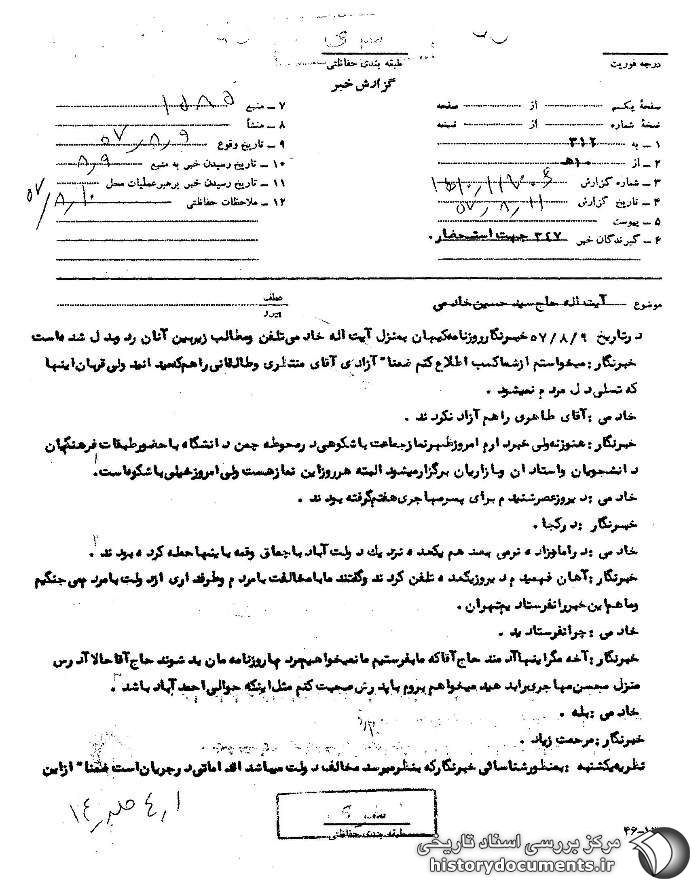 درجه فوریت
طبقه بندی حفاظتی
گزارش خبر
صفحهٔ یکم از صفحه
نسخهٔ شماره از نسخه
۱ – به ۳۱۲
۲ – از ۱۰هـ
۳ – شماره گزارش
۴ – تاریخ گزارش ۵۷٫۸٫۱۱
۵ – پیوست
۶ – گیرندگان خبر ۳۴۷ جهت استحضار.
۷ – منبع
۸ – منشأ
۹ – تاریخ وقوع ۵۷٫۸٫۹
۱۰ – تاریخ رسیدن خبر به منبع ۸٫۹
۱۱ – تاریخ رسیدن خبر برهبر عملیات محل ۵۷/۸٫۱۰
۱۲ – ملاحظات حفاظتی
موضوع آیت اله حاج سید حسین خادمی
عطف
پیرو
در تاریخ ۵۷/۸/۹ خبرنگار روزنامه کیهان بمنزل آیت اله خادمی تلفن و مطالب زیر بین آنان رد و بدل شده است
خبرنگار : میخواستم از شما کسب اطلاع کنم ضمنا" آزادی آقای منتظری و طالقانی را هم که میدانید ولی قربان اینها
که تسلی دل مردم نمیشود .
خادمی : آقای طاهری را هم آزاد نکردند .
خبرنگار : هنوز نه ولی خبر دارم امروز ظهر نماز جماعت باشکوهی در محوطه چمن دانشگاه با حضور طبقات فرهنگیان
دانشجویان و استادان و بازاریان برگزار میشود البته هر روز این نماز هست ولی امروز خیلی باشکوه است.
خادمی : دیروز عصر شنیدم برای پسر مهاجری هفتم گرفته بودند .
خبرنگار : در کجا .
خادمی : در امامزاده نرمی بعد هم یکعده نزدیک دولت آباد با چماق وقمه باینها حمله کرده بودند .
خبرنگار : آهان فهمیدم دیروز یکعده تلفن کردند وگفتند ما با مخالفت با مردم و طرفداری از دولت با مردم می جنگیم
و ما هم این خبر را نفرستادیم تهران .
خادمی : چرا نفرستادید .
خبرنگار : آخه مگر اینها آدمند حاج آقا که ما بفرستیم ما نمیخواهیم مردم با روزنامه مان بد شوند حاج آقا حالا آدرس
منزل محسن مهاجری را بدهید میخواهم بروم با پدرش صحبت کنم مثل اینکه حوالی احمد آباد باشد .
خادمی : بله .
خبرنگار : مرحمت زیاد .
نظریه یکشنبه : بمنظور شناسائی خبرنگار که بنظر میرسد مخالف دولت میباشد اقداماتی در جریان است ضمنا" از این
طبقه بندی حفاظتی
مرکز بررسی اسناد تاریخی
historydocuments.ir